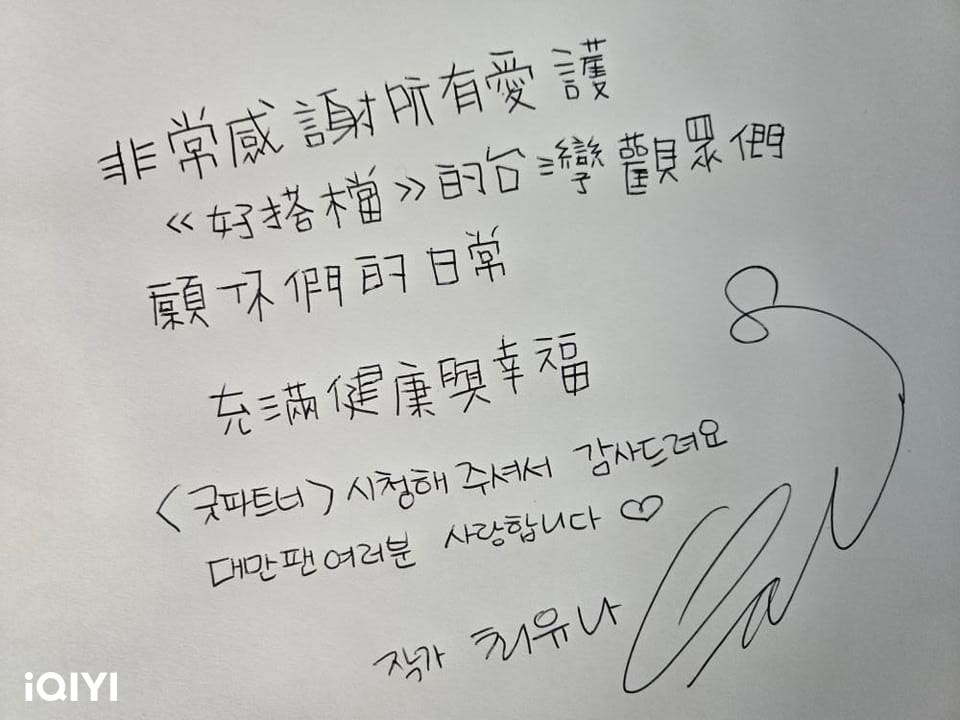 非常感謝所有愛護
《好搭檔》的台灣觀眾們
願你們的日常
充滿健康與幸福
〈굿파트너〉시청해 주셔서 감사드려요
대만팬여러분 사랑합니다 ♡
작가 최유나
iQIYI